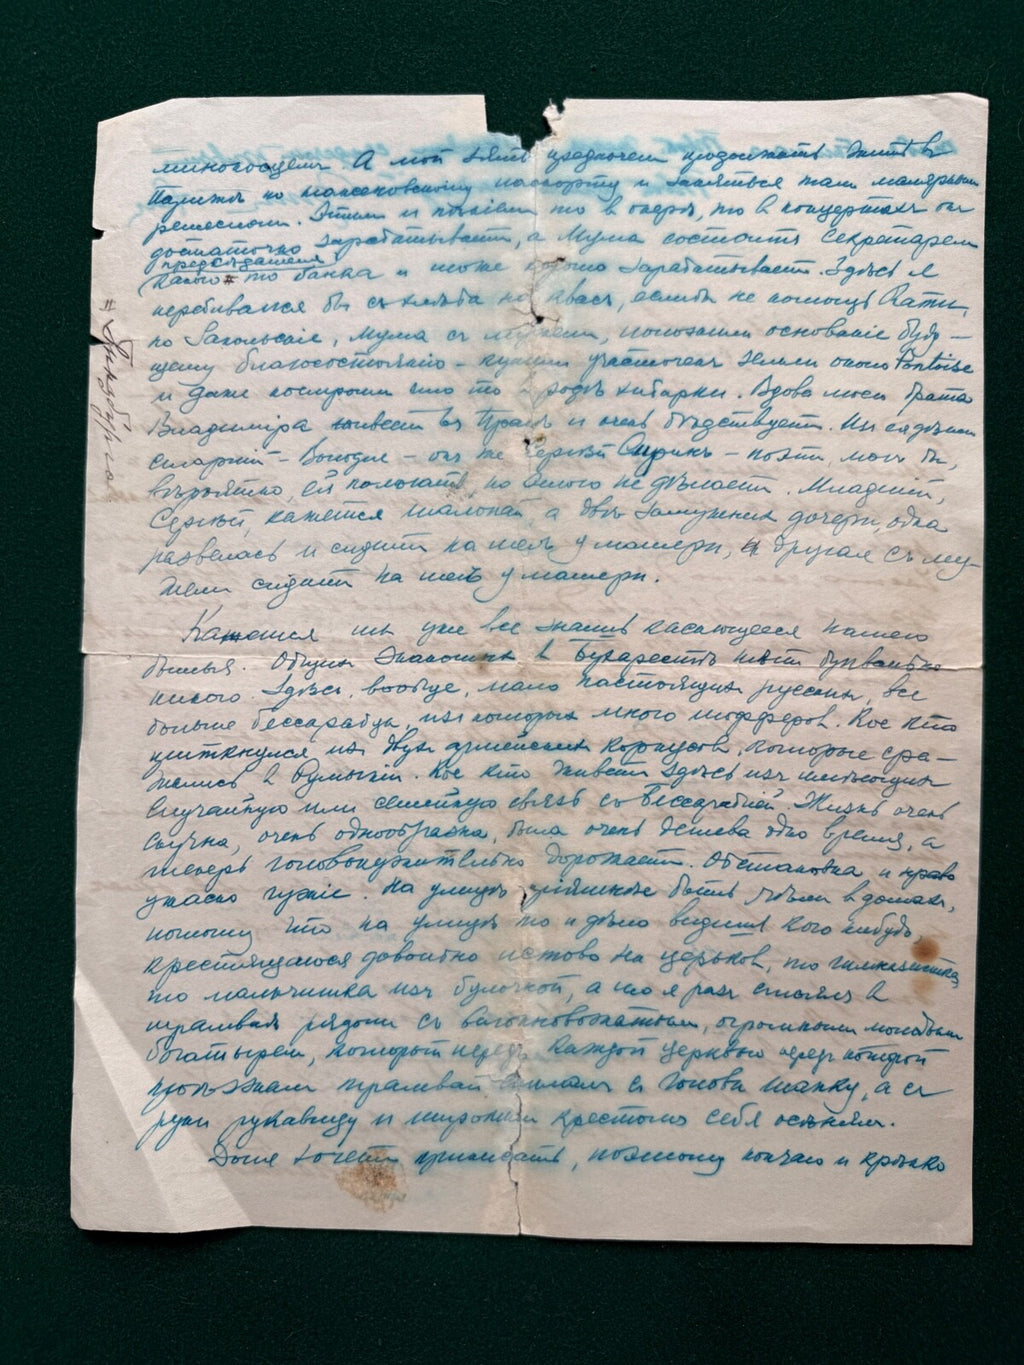 А мой зять предпочел продолжать жить в
Париже по нансеновскому паспорту и заняться там малярным
ремеслом. Этим и пѣніем то в оперѣ, то в концертахъ он
достаточно зарабатывает, а Мума состоитъ секретарем
предсѣдателя
какого # то банка и тоже хорошо зарабатывает. Здѣсь я
перебивался бы съ хлѣба на квасъ, еслибъ не помощь Кати,
но Закольскіе, Мума съ мужем, положили основаніе буду-
щему благосостоянію - купили участочек земли около Pontoise
и даже построили что то в родѣ хибарки. Вдова моего брата
Владиміра живет въ Прагѣ и очень бѣдствует. Из ея дѣтей
старшій - Володя - он же Сирин - поэт, мог бы,
вѣроятно, ей помогать, но этого не дѣлает. Младшій,
Сергѣй, кажется шалопай, а двѣ замужнихъ дочери, одна
развелась и сидит на шеѣ у матери, а другая съ му-
жем сидит на шеѣ у матери.
Кажется ты уже все знаешь касающееся нашего
бытья. Общих знакомых в Бухарестѣ нѣт буквально
никого. Здѣсь, вообще, мало настоящих русских, все
больше бессарабцы, из которых много шофферов. Кое кто
приткнулся из двух армейских корпусов, которые сра-
жались в Румыніи. Кое кто живет здѣсь из имѣющих
случайную или семейную связь съ Бессарабіей. Жизнь очень
скучна, очень однообразна, была очень дешева одно время, а
теперь головокружительно дорожает. Обстановка и нраво
ужасно чужіе. На улицѣ уютнѣе быть чѣм в домах,
потому что на улицѣ то и дѣло видишь кого нибудь,
крестящагося довольно истово на церковь, то гимназистка,
то мальчишка из булочной, а то я раз стоял в
трамваѣ рядом съ вагоновожатым, огромным молодым
богатырем, который передъ каждой церквью передъ которой
проѣзжал трамвай снимал съ головы шапку, а съ
руки рукавицу и широким крестом себя осѣнял.
Доля хочет приписать, поэтому кончаю и крѣпко